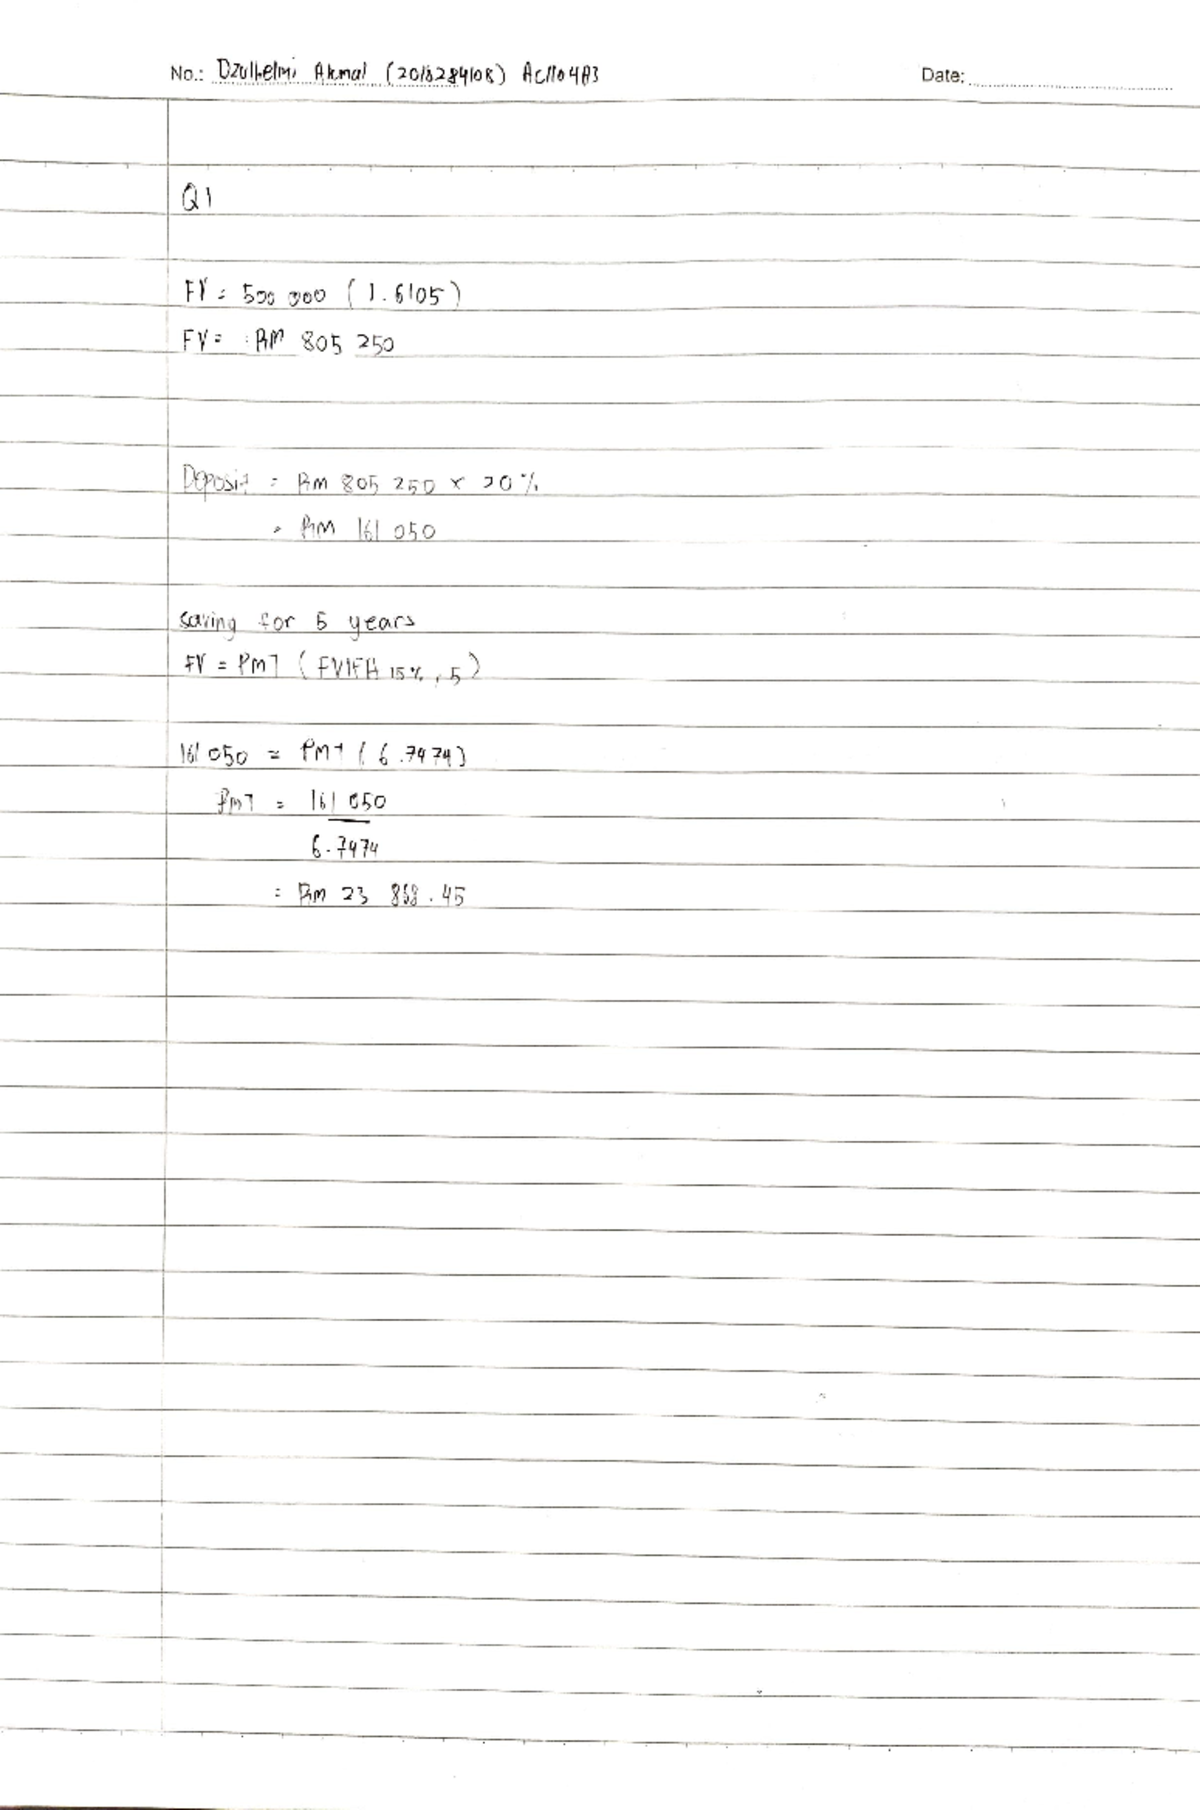 No.: Dzulhelmi Akmal (2018284108) AC1104A3 Date:
Q1
FV = 500 000 (1.6105)
FV = RM 805 250
Deposit = RM 805 250 x 20%
= RM 161 050
saving for 5 years
FV = PMT (FVIFA 15%, 5)
161 050 = PMT (6.7474)
PMT = 161 050
6.7474
= RM 23 868.45